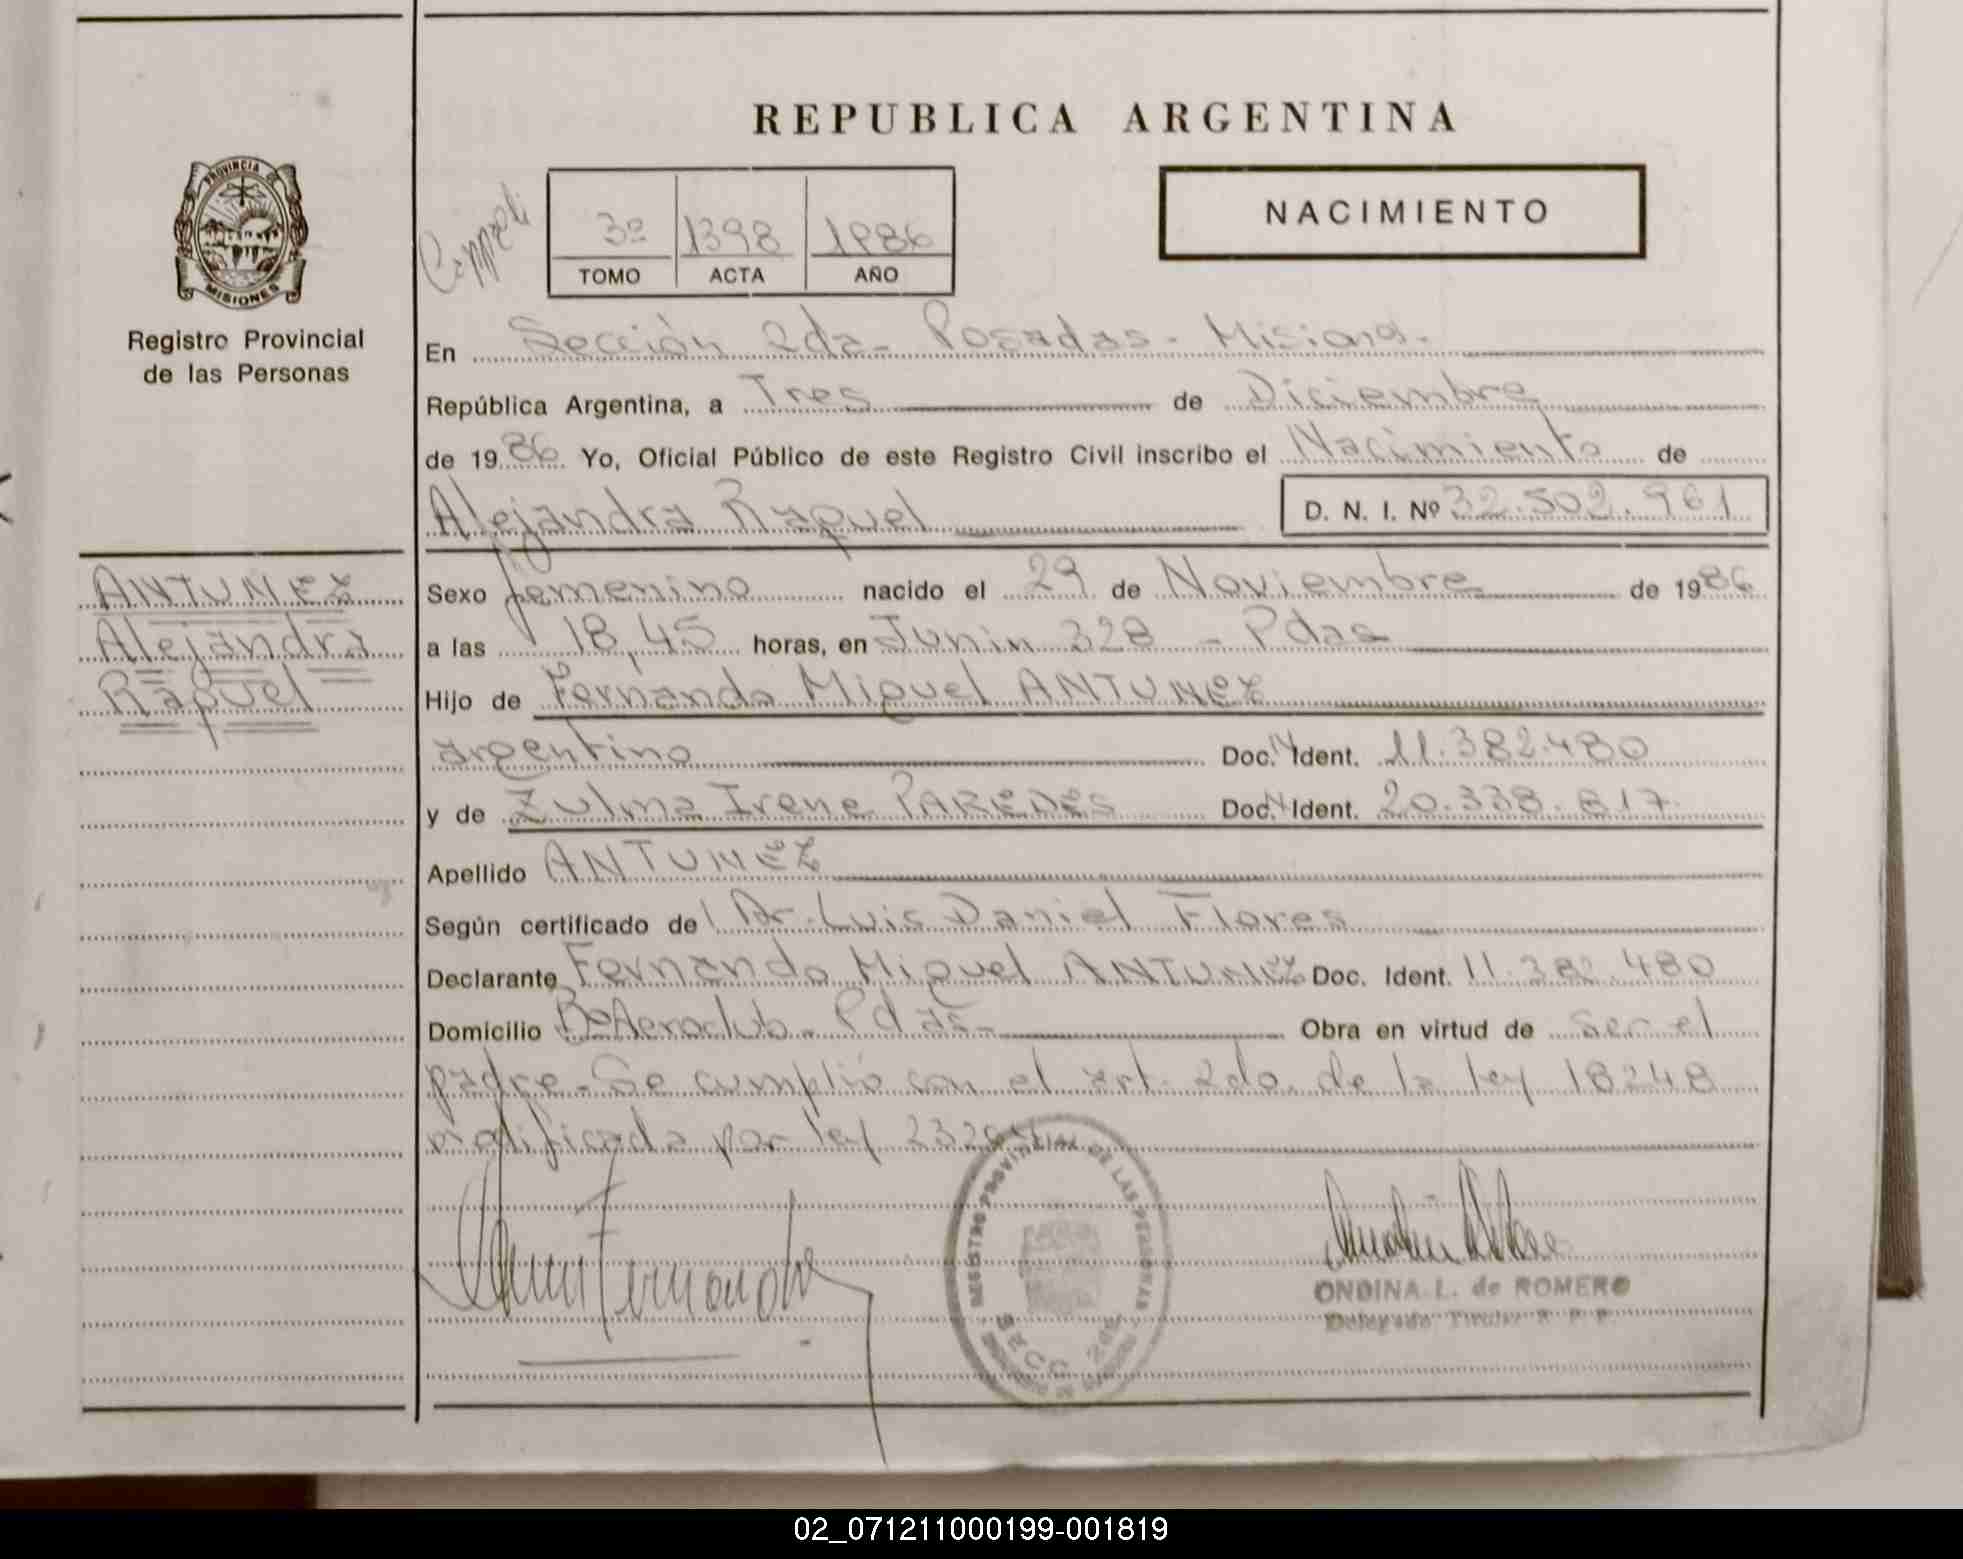 REPUBLICA ARGENTINA
PROVINCIA DE
MISIONES
Registro Provincial
de las Personas
3º 1398 1986
TOMO ACTA AÑO
NACIMIENTO
En Sección 2da- Posadas- Misiones-
República Argentina, a Tres de Diciembre
de 1986 Yo, Oficial Público de este Registro Civil inscribo el Nacimiento de
Alejandra Raquel D. N. I. Nº 32.502.961
ANTUNEZ
Alejandra
Raquel
Sexo femenino nacido el 29 de Noviembre de 1986
a las 18,45 horas, en Junin 328 - Pdas
Hijo de Fernando Miguel ANTUNEZ
argentino Doc. N Ident. 11.382.480
y de Zulma Irene PAREDES Doc. N Ident. 20.338.817
Apellido ANTUNEZ
Según certificado del Dr. Luis Daniel Flores
Declarante Fernando Miguel ANTUNEZ Doc. Ident. 11.382.480
Domicilio Bº Aeroclub- Pdas- Obra en virtud de ser el
padre- Se cumplió con el art. 2do. de la ley 18248
modificada por ley
REGISTRO PROVINCIAL DE LAS PERSONAS
SECC. 2da
ONDINA L. de ROMERO
Delegado Titular R. P. P.
02_071211000199-001819